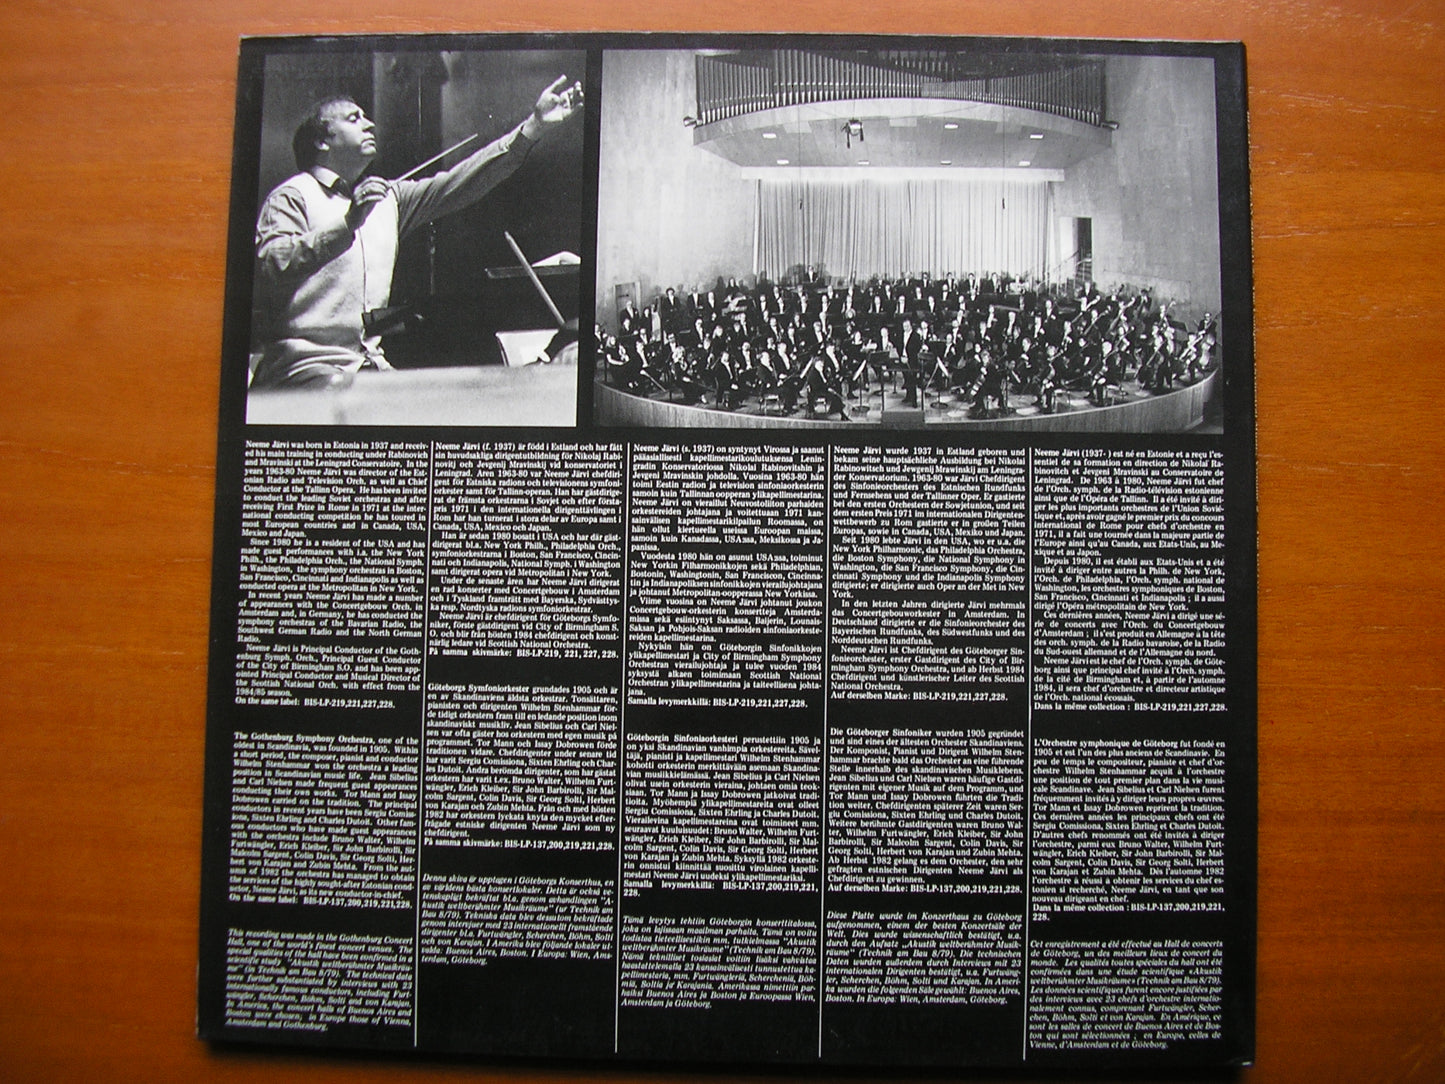 Neeme Järvi was born in Estonia in 1937 and receiv-
ed his main training in conducting under Rabinovich
and Mravinski at the Leningrad Conservatoire. In the
years 1963-80 Neeme Järvi was director of the Est-
onian Radio and Television Orch., as well as Chief
Conductor at the Tallinn Opera. He has been invited
to conduct the leading Soviet orchestras and after
receiving First Prize in Rome in 1971 at the inter-
national conducting competition he has toured in
most European countries and in Canada, USA,
Mexico and Japan.
Since 1980 he is a resident of the USA and has
made guest performances with i.a. the New York
Phil., the Philadelphia Orch., the National Symph.
in Washington, the symphony orchestras in Boston,
San Francisco, Cincinnati and Indianapolis as well as
conducted opera at the Metropolitan in New York.
In recent years Neeme Järvi has made a number
of appearances with the Concertgebouw Orch. in
Amsterdam and, in Germany, he has conducted the
symphony orchestras of the Bavarian Radio, the
Southwest German Radio and the North German
Radio.
Neeme Järvi is Principal Conductor of the Goth-
enburg Symph. Orch., Principal Guest Conductor
of the City of Birmingham S.O. and has been app-
ointed Principal Conductor and Musical Director of
the Scottish National Orch. with effect from the
1984/85 season.
On the same label: BIS-LP-219,221,227,228.
The Gothenburg Symphony Orchestra, one of the
oldest in Scandinavia, was founded in 1905. Within
a short period, the composer, pianist and conductor
Wilhelm Stenhammar won the orchestra a leading
position in Scandinavian music life. Jean Sibelius
and Carl Nielsen made frequent guest appearances
conducting their own works. Tor Mann and Issay
Dobrowen carried on the tradition. The principal
conductors in recent years have been Sergiu Comiss-
iona, Sixten Ehrling and Charles Dutoit. Other fam-
ous conductors who have made guest appearances
with the orchestra include Bruno Walter, Wilhelm
Furtwängler, Erich Kleiber, Sir John Barbirolli, Sir
Malcolm Sargent, Colin Davis, Sir Georg Solti, Her-
bert von Karajan and Zubin Mehta. From the aut-
umn of 1982 the orchestra has managed to obtain
the services of the highly sought-after Estonian cond-
uctor, Neeme Järvi, as its new conductor-in-chief.
On the same label: BIS-LP-137,200,219,221,228.
This recording was made in the Gothenburg Concert
Hall, one of the world's finest concert venues. The
great qualities of the hall have been confirmed in a
scientific study "Akustik weltberühmter Musikräu-
me" (in Technik am Bau 8/79). The technical data
were further substantiated by interviews with 23
internationally famous conductors, including Furt-
wängler, Scherchen, Böhm, Solti and von Karajan.
In America, the concert halls of Buenos Aires and
Boston were chosen; in Europe those of Vienna,
Amsterdam and Gothenburg.
Neeme Järvi (f. 1937) är född i Estland och har fått
sin huvudsakliga dirigentutbildning för Nikolaj Rabi-
novitj och Jevgenij Mravinskij vid konservatoriet i
Leningrad. Åren 1963-80 var Neeme Järvi chefdiri-
gent för Estniska radions och televisionens symfoni-
orkester samt för Tallinn-operan. Han har gästdirige-
rat de främsta orkestrarna i Sovjet och efter första-
pris 1971 i den internationella dirigenttävlingen i
Rom har han turnerat i stora delar av Europa samt i
Canada, USA, Mexico och Japan.
Han är sedan 1980 bosatt i USA och har där gäst-
dirigerat bl.a. New York Philh., Philadelphia Orch.,
symfoniorkestrarna i Boston, San Francisco, Cincin-
nati och Indianapolis, National Symph. i Washington
samt dirigerat opera vid Metropolitan i New York.
Under de senaste åren har Neeme Järvi dirigerat
en rad konserter med Concertgebouw i Amsterdam
och i Tyskland framträtt med Bayerska, Sydvästtys-
ka resp. Nordtyska radions symfoniorkestrar.
Neeme Järvi är chefdirigent för Göteborgs Symfo-
niker, förste gästdirigent vid City of Birmingham S.
O. och blir från hösten 1984 chefdirigent och konst-
närlig ledare vid Scottish National Orchestra.
På samma skivmärke: BIS-LP-219, 221, 227, 228.
Göteborgs Symfoniorkester grundades 1905 och är
en av Skandinaviens äldsta orkestrar. Tonsättaren,
pianisten och dirigenten Wilhelm Stenhammar för-
de tidigt orkestern fram till en ledande position inom
skandinaviskt musikliv. Jean Sibelius och Carl Niel-
sen var ofta gäster hos orkestern med egen musik på
programmet. Tor Mann och Issay Dobrowen förde
traditionen vidare. Chefdirigenter under senare tid
har varit Sergiu Comissiona, Sixten Ehrling och Char-
les Dutoit. Andra berömda dirigenter, som har gästat
orkestern har varit t.ex. Bruno Walter, Wilhelm Furt-
wängler, Erich Kleiber, Sir John Barbirolli, Sir Mal-
colm Sargent, Colin Davis, Sir Georg Solti, Herbert
von Karajan och Zubin Mehta. Från och med hösten
1982 har orkestern lyckats knyta den mycket efter-
frågade estniske dirigenten Neeme Järvi som ny
chefdirigent.
På samma skivmärke: BIS-LP-137,200,219,221,228.
Denna skiva är upptagen i Göteborgs Konserthus, en
av världens bästa konsertlokaler. Detta är också ve-
tenskapligt bekräftat bl.a. genom avhandlingen "A-
kustik weltberühmter Musikräume" (ur Technik am
Bau 8/79). Tekniska data blev dessutom bekräftade
genom intervjuer med 23 internationellt framstående
dirigenter bl.a. Furtwängler, Scherchen, Böhm, Solti
och von Karajan. I Amerika blev följande lokaler ut-
valda: Buenos Aires, Boston. I Europa: Wien, Ams-
terdam, Göteborg.
Neeme Järvi (s. 1937) on syntynyt Virossa ja saanut
pääasiallisesti kapellimestarikoulutuksensa Lenin-
gradin Konservatoriossa Nikolai Rabinovitshin ja
Jevgeni Mravinskin johdolla. Vuosina 1963-80 hän
toimi Eestin radion ja television sinfoniaorkesterin
samoin kuin Tallinnan oopperan ylikapellimestarina.
Neeme Järvi on vieraillut Neuvostoliiton parhaiden
orkestereiden johtajana ja voitettuaan 1971 kan-
sainvälisen kapellimestarikilpailun Roomassa, on
hän ollut kiertueella useissa Euroopan maissa,
samoin kuin Kanadassa, USA:ssa, Meksikossa ja Ja-
panissa.
Vuodesta 1980 hän on asunut USA:ssa, toiminut
New Yorkin Filharmonikkojen sekä Philadelphian,
Bostonin, Washingtonin, San Franciscon, Cincinna-
tin ja Indianapoliksen sinfonikkojen vierailujohtajana
ja johtanut Metropolitan-oopperassa New Yorkissa.
Viime vuosina on Neeme Järvi johtanut joukon
Concertgebouw-orkesterin konsertteja Amsterda-
missa sekä esiintynyt Saksassa, Baijerin, Lounais-
Saksan ja Pohjois-Saksan radioiden sinfoniaorkeste-
reiden kapellimestarina.
Nykyisin hän on Göteborgin Sinfonikkojen
ylikapellimestari ja City of Birmingham Symphony
Orchestran vierailujohtaja ja tulee vuoden 1984
syksystä alkaen toimimaan Scottish National
Orchestran ylikapellimestarina ja taiteellisena johta-
jana.
Samalla levymerkillä: BIS-LP-219,221,227,228.
Göteborgin Sinfoniaorkesteri perustettiin 1905 ja
on yksi Skandinavian vanhimpia orkestereita. Sävel-
täjä, pianisti ja kapellimestari Wilhelm Stenhammar
kohotti orkesterin merkittävään asemaan Skandina-
vian musiikkielämässä. Jean Sibelius ja Carl Nielsen
olivat usein orkesterin vieraina, johtaen omia teok-
siaan. Tor Mann ja Issay Dobrowen jatkoivat tradi-
tioita. Myöhempiä ylikapellimestareita ovat olleet
Sergiu Comissiona, Sixten Ehrling ja Charles Dutoit.
Vierailevina kapellimestareina ovat toimineet mm.
seuraavat kuuluisuudet: Bruno Walter, Wilhelm Furt-
wängler, Erich Kleiber, Sir John Barbirolli, Sir Mal-
colm Sargent, Colin Davis, Sir Georg Solti, Herbert
von Karajan ja Zubin Mehta. Syksyllä 1982 orkeste-
rin onnistui kiinnittää suosittu virolainen kapelli-
mestari Neeme Järvi uudeksi ylikapellimestariksi.
Samalla levymerkillä: BIS-LP-137,200,219,221,
228.
Tämä levytys tehtiin Göteborgin konserttitalossa,
joka on lajissaan maailman parhaita. Tämä on voitu
todistaa tieteellisestikin mm. tutkielmassa "Akustik
weltberühmter Musikräume" (Technik am Bau 8/79).
Nämä teknilliset tosiasiat voitiin lisäksi vahvistaa
haastattelemalla 23 kansainvälisesti tunnustettua ka-
pellimestaria, mm. Furtwängleriä, Scherchenia, Böh-
miä, Soltia ja Karajania. Amerikassa nimettiin par-
haiksi Buenos Aires ja Boston ja Euroopassa Wien,
Amsterdam ja Göteborg.
Neeme Järvi wurde 1937 in Estland geboren und
bekam seine hauptsächliche Ausbildung bei Nikolaj
Rabinowitsch und Jewgenij Mrawinskij am Leningra-
der Konservatorium. 1963-80 war Järvi Chefdirigent
des Sinfonieorchesters des Estnischen Rundfunks
und Fernsehens und der Tallinner Oper. Er gastierte
bei den ersten Orchestern der Sowjetunion, und seit
dem ersten Preis 1971 im internationalen Dirigenten-
wettbewerb zu Rom gastierte er in großen Teilen
Europas, sowie in Canada, USA, Mexiko und Japan.
Seit 1980 lebte Järvi in den USA, wo er u.a. die
New York Philharmonic, das Philadelphia Orchestra,
die Boston Symphony, die National Symphony in
Washington, die San Francisco Symphony, die Cin-
cinnati Symphony und die Indianapolis Symphony
dirigierte; er dirigierte auch Oper an der Met in New
York.
In den letzten Jahren dirigierte Järvi mehrmals
das Concertgebouworkester in Amsterdam. In
Deutschland dirigierte er die Sinfonieorchester des
Bayerischen Rundfunks, des Südwestfunks und des
Norddeutschen Rundfunks.
Neeme Järvi ist Chefdirigent des Göteborger Sin-
fonieorchester, erster Gastdirigent des City of Bir-
mingham Symphony Orchestra, und ab Herbst 1984
Chefdirigent und künstlerischer Leiter des Scottish
National Orchestra.
Auf derselben Marke: BIS-LP-219,221,227,228.
Die Göteborger Sinfoniker wurden 1905 gegründet
und sind eines der ältesten Orchester Skandinaviens.
Der Komponist, Pianist und Dirigent Wilhelm Sten-
hammar brachte bald das Orchester an eine führende
Stelle innerhalb des skandinavischen Musiklebens.
Jean Sibelius und Carl Nielsen waren häufige Gastdi-
rigenten mit eigener Musik auf dem Programm, und
Tor Mann und Issay Dobrowen führten die Tradi-
tion weiter. Chefdirigenten späterer Zeit waren Ser-
giu Comissiona, Sixten Ehrling und Charles Dutoit.
Weitere berühmte Gastdirigenten waren Bruno Wal-
ter, Wilhelm Furtwängler, Erich Kleiber, Sir John
Barbirolli, Sir Malcolm Sargent, Colin Davis, Sir
Georg Solti, Herbert von Karajan und Zubin Mehta.
Ab Herbst 1982 gelang es dem Orchester, den sehr
gefragten estnischen Dirigenten Neeme Järvi als
Chefdirigent zu gewinnen.
Auf derselben Marke: BIS-LP-137,200,219,221,228.
Diese Platte wurde im Konzerthaus zu Göteborg
aufgenommen, einem der besten Konzertsäle der
Welt. Dies wurde wissenschaftlich bestätigt, u.a.
durch den Aufsatz „Akustik weltberühmter Musik-
räume" (Technik am Bau 8/79). Die technischen
Daten wurden außerdem durch Interviews mit 23
internationalen Dirigenten bestätigt, u.a. Furtwäng-
ler, Scherchen, Böhm, Solti und Karajan. In Ameri-
ka wurden die folgenden Säle gewählt: Buenos Aires,
Boston. In Europa: Wien, Amsterdam, Göteborg.
Neeme Järvi (1937- ) est né en Estonie et a reçu l'es-
sentiel de sa formation en direction de Nikolaï Ra-
binovitch et Jevgeni Mravinski au Conservatoire de
Leningrad. De 1963 à 1980, Neeme Järvi fut chef
de l'Orch. symph. de la Radio-télévision estonienne
ainsi que de l'Opéra de Tallinn. Il a été invité à diri-
ger les plus importants orchestres de l'Union Sovié-
tique et, après avoir gagné le premier prix du concours
international de Rome pour chefs d'orchestre en
1971, il a fait une tournée dans la majeure partie de
l'Europe ainsi qu'au Canada, aux Etats-Unis, au Me-
xique et au Japon.
Depuis 1980, il est établi aux Etats-Unis et a été
invité à diriger entre autres la Philh. de New York,
l'Orch. de Philadelphia, l'Orch. symph. national de
Washington, les orchestres symphoniques de Boston,
San Francisco, Cincinnati et Indianapolis ; il a aussi
dirigé l'Opéra métropolitain de New York.
Ces dernières années, Neeme Järvi a dirigé une sé-
rie de concerts avec l'Orch. du Concertgebouw
d'Amsterdam ; il s'est produit en Allemagne à la tête
des orch. symph. de la Radio bavaroise, de la Radio
du Sud-ouest allemand et de l'Allemagne du nord.
Neeme Järvi est le chef de l'Orch. symph. de Göte-
borg ainsi que principal chef invité à l'Orch. symph.
de la cité de Birmingham et, à partir de l'automne
1984, il sera chef d'orchestre et directeur artistique
de l'Orch. national écossais.
Dans la même collection : BIS-LP-219,221,227,228.
L'Orchestre symphonique de Göteborg fut fondé en
1905 et est l'un des plus anciens de Scandinavie. En
peu de temps le compositeur, pianiste et chef d'or-
chestre Wilhelm Stenhammar acquit à l'orchestre
une position de tout premier plan dans la vie musi-
cale Scandinave. Jean Sibelius et Carl Nielsen furent
fréquemment invités à y diriger leurs propres œuvres.
Tor Mann et Issay Dobrowen reprirent la tradition.
Ces dernières années les principaux chefs ont été
Sergiu Comissiona, Sixten Ehrling et Charles Dutoit.
D'autres chefs renommés ont été invités à diriger
l'orchestre, parmi eux Bruno Walter, Wilhelm Furt-
wängler, Erich Kleiber, Sir John Barbirolli, Sir Mal-
colm Sargent, Colin Davis, Sir Georg Solti, Herbert
von Karajan et Zubin Mehta. Dès l'automne 1982
l'orchestre a réussi à obtenir les services du chef es-
tonien si recherché, Neeme Järvi, en tant que son
nouveau dirigeant en chef.
Dans la même collection : BIS-LP-137,200,219,221,
228.
Cet enregistrement a été effectué au Hall de concerts
de Göteborg, un des meilleurs lieux de concert du
monde. Les qualités toutes spéciales du hall ont été
confirmées dans une étude scientifique «Akustik
weltberühmter Musikräume» (Technik am Bau 8/79).
Les données scientifiques furent encore justifiées par
des interviews avec 23 chefs d'orchestre internatio-
nalement connus, comprenant Furtwängler, Scher-
chen, Böhm, Solti et von Karajan. En Amérique, ce
sont les salles de concert de Buenos Aires et de Bos-
ton qui sont sélectionnées ; en Europe, celles de
Vienne, d'Amsterdam et de Göteborg.